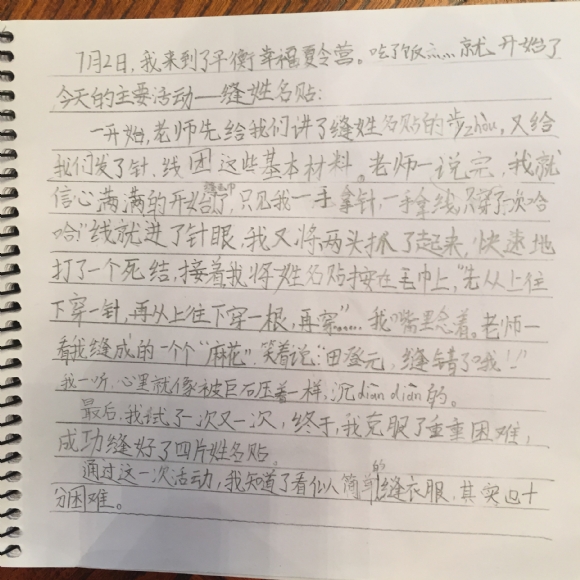 7月2日,我来到了平衡幸福夏令营。吃了饭……就开始了
今天的主要活动——缝姓名贴:
一开始,老师先给我们讲了缝姓名贴的步zhòu,又给
我们发了针、线团这些基本材料。老师一说完,我就
信心满满的开始了,只见我一手拿针,一手拿线,只穿了一次哈
哈!线就进了针眼,我又将两头抓了起来,快速地
打了一个死结,接着我将姓名贴按在毛巾上,"先从上往
下穿一针,再从上往下穿一根,再穿"……我嘴里念着。老师一
看我缝成的一个个"麻花",笑着说:"田登元,缝错了哦!"
我一听,心里就像被巨石压着一样,沉diàn diàn的。
最后,我试了一次又一次,终于,我克服了重重困难,
成功缝好了四片姓名贴。
通过这一次活动,我知道了看似简单的缝衣服,其实也十
分困难。